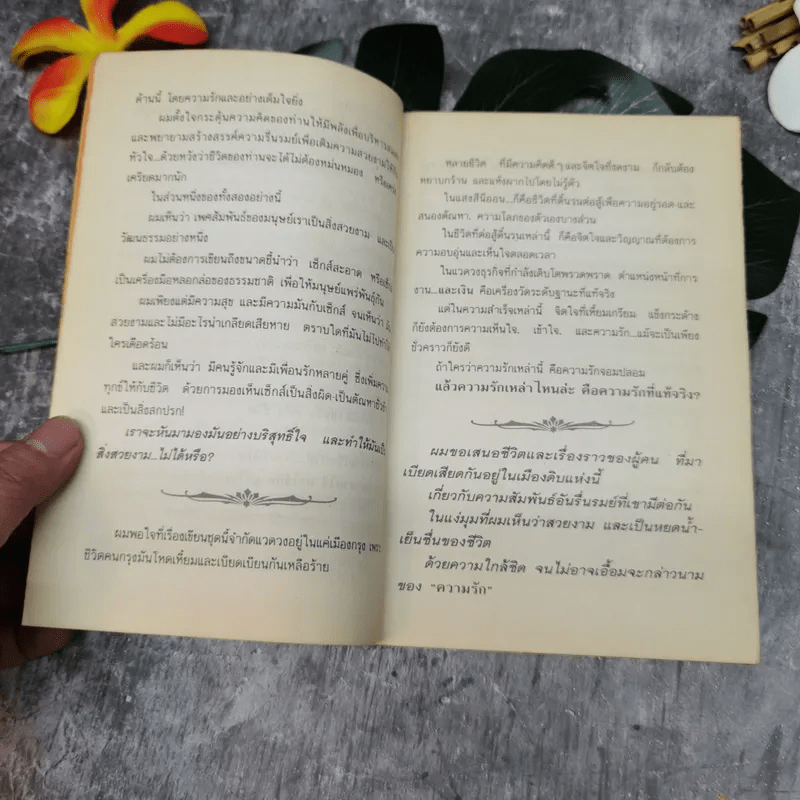 ด้านนี้ โดยความรักและอย่างเต็มใจยิ่ง
ผมตั้งใจกระตุ้นความคิดของท่านให้มีพลังเพื่อบริหาร
และพยายามสร้างสรรค์ความรื่นรมย์เพื่อเติมความสวยงามให้กับ
หัวใจ...ด้วยหวังว่าชีวิตของท่านจะได้ไม่ต้องหม่นหมอง หรือ
เครียดมากนัก
ในส่วนหนึ่งของทั้งสองอย่างนี้
ผมเห็นว่า เพศสัมพันธ์ของมนุษย์เราเป็นสิ่งสวยงาม และเป็น
วัฒนธรรมอย่างหนึ่ง
ผมไม่ต้องการเขียนถึงขนาดชี้นำว่า เซ็กส์สะอาด หรือ
เป็นเครื่องมือหลอกล่อของธรรมชาติ เพื่อให้มนุษย์แพร่พันธุ์กัน
ผมเพียงแต่มีความสุข และมีความมันกับเซ็กส์ จนเห็นว่า มัน
สวยงามและไม่มีอะไรน่าเกลียดเสียหาย ตราบใดที่มันไม่ไปทำให้
ใครเดือดร้อน
และผมก็เห็นว่า มีคนรู้จักและมีเพื่อนรักหลายคู่ ซึ่งเพิ่มความ
ทุกข์ให้กับชีวิต ด้วยการมองเห็นเซ็กส์เป็นสิ่งผิด-เป็นตัณหาชั่วช้า
และเป็นสิ่งสกปรก!
เราจะหันมามองมันอย่างบริสุทธิ์ใจ และทำให้มันเป็น
สิ่งสวยงาม...ไม่ได้หรือ?
ผมพอใจที่เรื่องเขียนชุดนี้จำกัดแวดวงอยู่ในแค่เมืองกรุง เพราะ
ชีวิตคนกรุงมันโหดเหี้ยมและเบียดเบียนกันเหลือร้าย
หลายชีวิต ที่มีความคิดดีๆ และจิตใจที่งดงาม ก็กลับต้อง
หยาบกร้าน และแห้งผากไปโดยไม่รู้ตัว
ในแสงสีนีออน...ก็คือชีวิตที่ดิ้นรนต่อสู้เพื่อความอยู่รอด และ
สนองตัณหา, ความโลภของตัวเองบางส่วน
ในชีวิตที่ต่อสู้ดิ้นรนเหล่านี้ ก็คือจิตใจและวิญญาณที่ต้องการ
ความอบอุ่นและเห็นใจตลอดเวลา
ในแวดวงธุรกิจที่กำลังเติบโตพรวดพราด ตำแหน่งหน้าที่การ
งาน...และเงิน คือเครื่องวัดระดับฐานะที่แท้จริง
แต่ในความสำเร็จเหล่านี้ จิตใจที่เหี้ยมเกรียม แข็งกระด้าง
ก็ยังต้องการความเห็นใจ, เข้าใจ, และความรัก...แม้จะเป็นเพียง
ชั่วคราวก็ยังดี
ถ้าใครว่าความรักเหล่านี้ คือความรักจอมปลอม
แล้วความรักเหล่าไหนล่ะ คือความรักที่แท้จริง?
ผมขอเสนอชีวิตและเรื่องราวของผู้คน ที่มา
เบียดเสียดกันอยู่ในเมืองดิบแห่งนี้
เกี่ยวกับความสัมพันธ์อันรื่นรมย์ที่เขามีต่อกัน
ในแง่มุมที่ผมเห็นว่าสวยงาม และเป็นหยดน้ำ-
เย็นชื่นของชีวิต
ด้วยความใกล้ชิด จนไม่อาจเอื้อมจะกล่าวนาม
ของ "ความรัก"